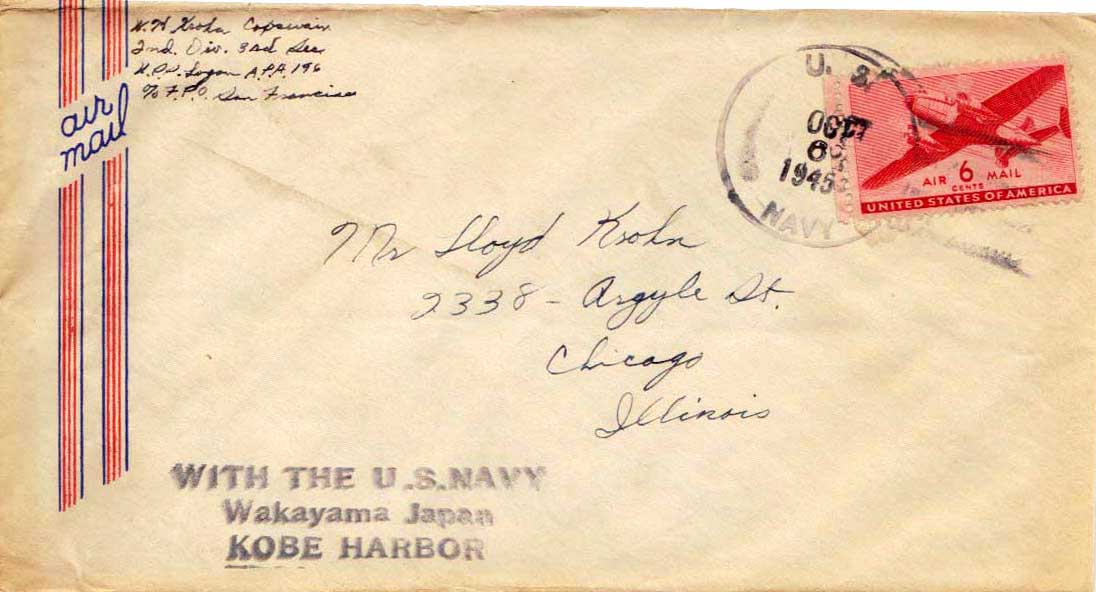 W. H. Krohn Coxswain
2nd. Div. 3rd Sec
U.S.S. Logan A.P.A. 196
℅ F.P.O. San Francisco
air
mail
U. S.
OCT
6
1945
NAVY
AIR 6 MAIL
CENTS
UNITED STATES OF AMERICA
Mr Lloyd Krohn
2338 - Argyle St.
Chicago
Illinois
WITH THE U.S.NAVY
Wakayama Japan
KOBE HARBOR